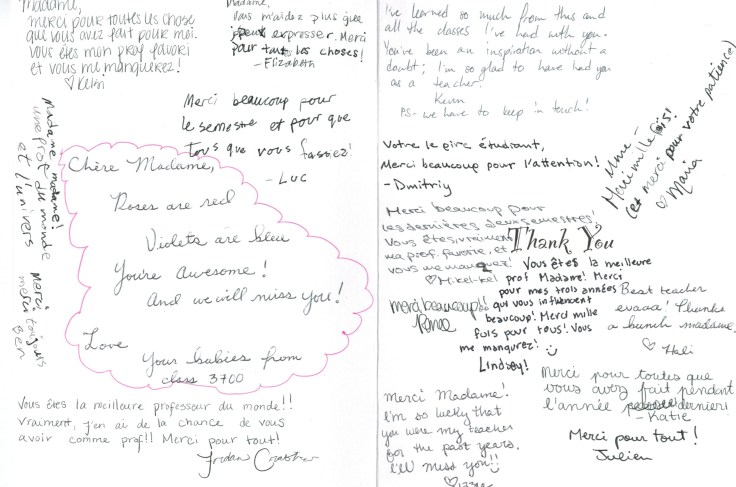 Madame,
merci pour toutes les chose
que vous avez fait pour moi.
Vous êtes mon prof favori
et vous me manquerez!
♡ Kelin
Madame,
Vous m'aidez plus que
je peux expresser. Merci
pour tout les choses!
- Elizabeth
Merci beaucoup pour
le semestre et pour que
tous que vous fassiez!
- Luc
Madame madame!
une prof du monde
et l'univers
merci
merci toujours
Ben
Chère Madame,
Roses are red
Violets are bleu
You're awesome!
And we will miss you!
Love
Your babies from
class 3700
Vous êtes la meilleure professeur du monde!!
Vraiment, j'en ai de la chance de vous
avoir comme prof!! Merci pour tout!
Jordan
I've learned so much from this and
all the classes I've had with you.
You've been an inspiration without a
doubt; I'm so glad to have had you
as a teacher.
Kevin
PS- we have to keep in touch!
Mme -
Merci mille fois!
(et merci pour votre patience)
♡ Maria
Votre le pire étudiant,
Merci beaucoup pour l'attention!
- Dmitriy
Merci beaucoup pour
les dernières deux semestres!
Vous êtes, vraiment,
ma prof. favorite, et
vous me manquez!
♡ Mikel-kel
Thank You
Vous êtes la meilleure
prof Madame! Merci
pour mes trois années
qui vous influencent
beaucoup! Merci mille
fois pour tous! Vous
me manqurez! :)
Lindsey!
merci beaucoup!!
Renee
Best teacher
evaaa! Thanks
a bunch madame.
♡ Hali
Merci Madame!
I'm so lucky that
you were my teacher
for the past years.
I'll miss you!!
Merci pour toutes que
vous avez fait pendant
l'année derniere
- Katie
Merci pour tout!
Julien